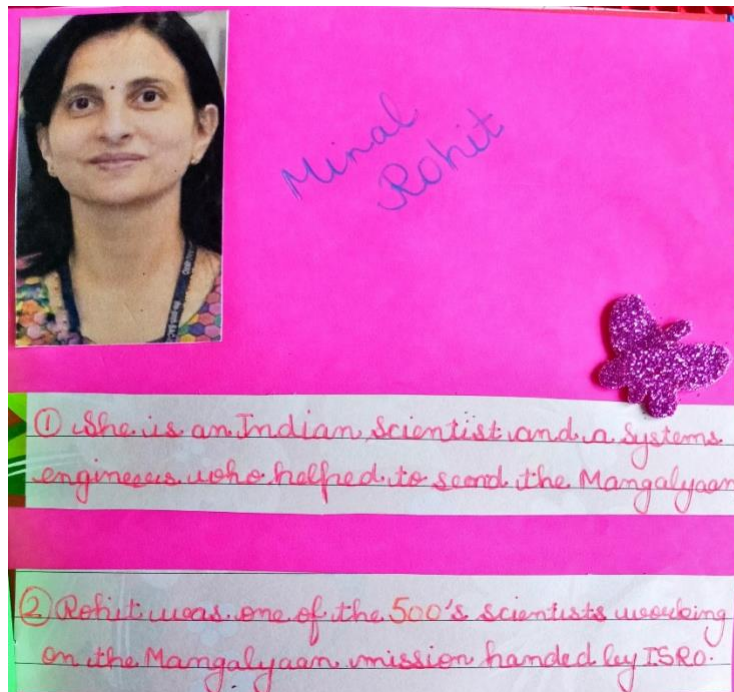 Minal
Rohit
① She is an Indian scientist and a systems
engineers who helped to send the Mangalyaan
② Rohit was one of the 500's scientists working
on the Mangalyaan mission handed by ISRO.